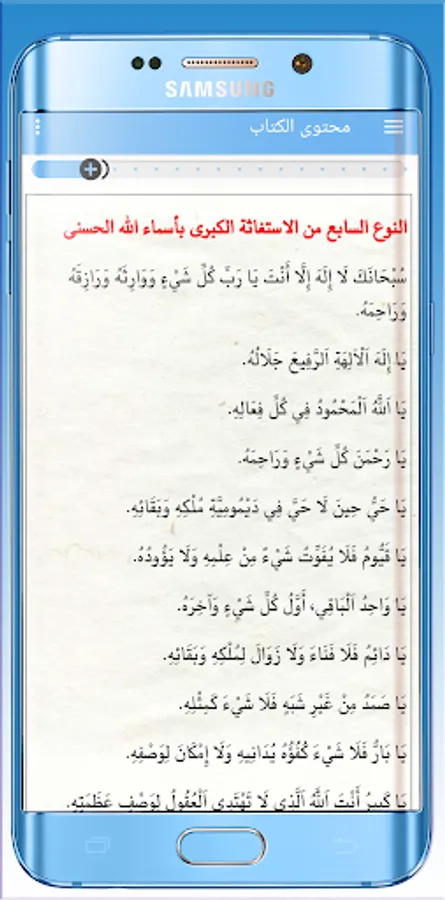 SAMSUNG
محتوى الكتاب
النوع السابع من الاستغاثة الكبرى بأسماء الله الحسنى
سُبْحَانَكَ لَا إِلَهَ إِلَّا أَنْتَ يَا رَبَّ كُلِّ شَيْءٍ وَوَارِثَهُ وَرَازِقَهُ
وَرَاحِمَهُ.
يَا إِلَهَ اَلْآلِهَةِ اَلرَّفِيعَ جَلَالُهُ.
يَا اَللَّهُ اَلْمَحْمُودُ فِي كُلِّ فِعَالِهِ.
يَا رَحْمَنَ كُلِّ شَيْءٍ وَرَاحِمَهُ.
يَا حَيُّ حِينَ لَا حَيَّ فِي دَيْمُومِيَّةِ مُلْكِهِ وَبَقَائِهِ.
يَا قَيُّومُ فَلَا يُفَوِّتُ شَيْءٌ مِنْ عِلْمِهِ وَلَا يَؤُودُهُ.
يَا وَاحِدُ اَلْبَاقِي، أَوَّلُ كُلِّ شَيْءٍ وَآخِرَهُ.
يَا دَائِمُ فَلَا فَنَاءَ وَلَا زَوَالَ لِمُلْكِهِ وَبَقَائِهِ.
يَا صَمَدُ مِنْ غَيْرِ شَبَهٍ فَلَا شَيْءَ كَمِثْلِهِ.
يَا بَارُّ فَلَا شَيْءَ كُفُؤُهُ يُدَانِيهِ وَلَا إِمْكَانَ لِوَصْفِهِ.
يَا كَبِيرُ أَنْتَ اَللَّهُ اَلَّذِي لَا تَهْتَدِي اَلْعُقُولُ لِوَصْفِ عَظَمَتِهِ.